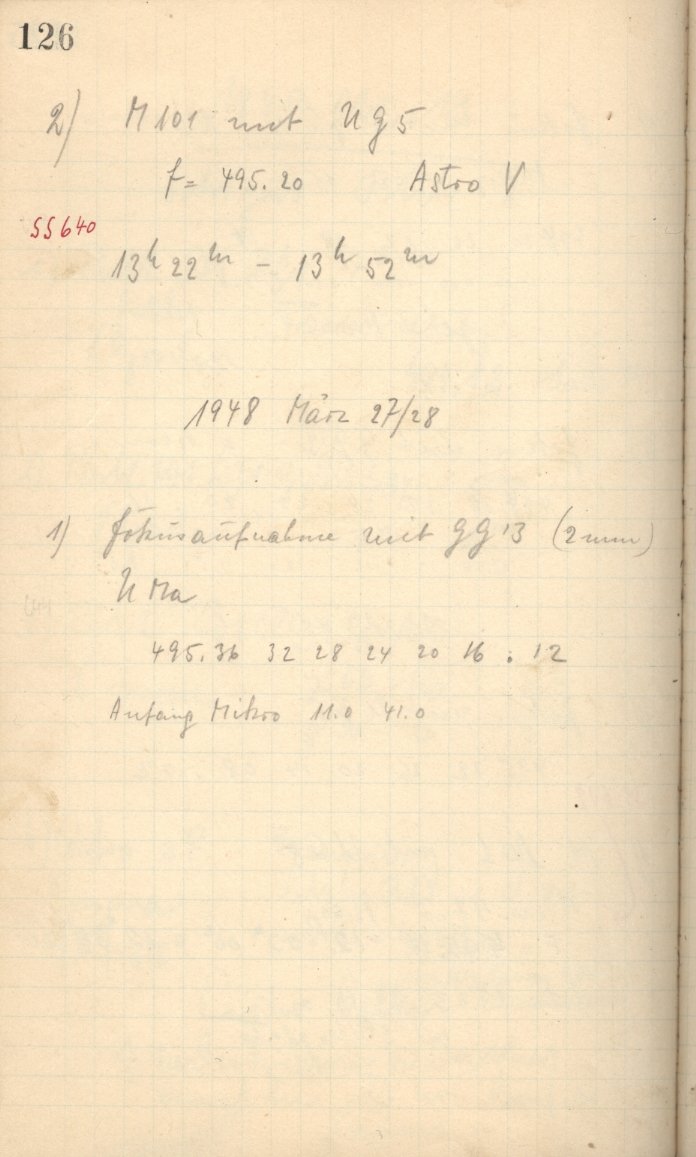 126
2) M 101 mit UG5
f = 495.20 Astro V
SS640
13h 22m – 13h 52m
1948 März 27/28
1) Fokusaufnahme mit GG13 (2mm)
U Ma
495.36 32 28 24 20 16 . 12
Anfang Mikro 11.0 41.0